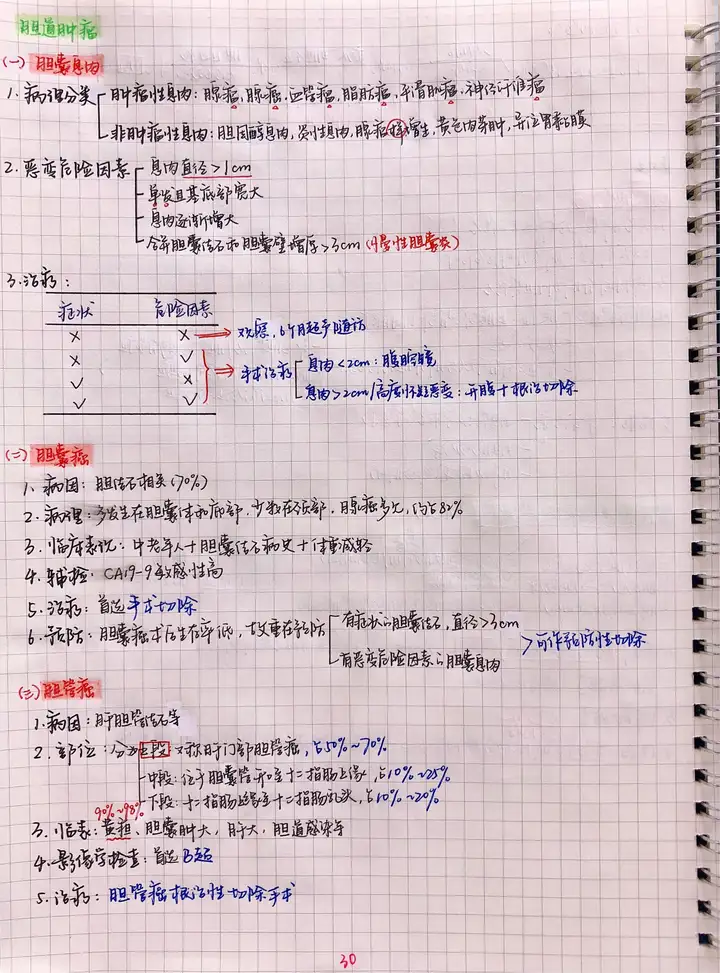 胆道肿瘤
(一) 胆囊息肉
1. 病理分类 肿瘤性息肉: 腺瘤, 腺癌, 血管瘤, 脂肪瘤, 平滑肌瘤, 神经纤维瘤
非肿瘤性息肉: 胆固醇息肉, 炎性息肉, 腺瘤样增生, 黄色肉芽肿, 异位胃黏膜
2. 恶变危险因素 息肉直径>1cm
单发且基底部宽大
息肉逐渐增大
合并胆囊结石和胆囊壁增厚>3cm (慢性胆囊炎)
3. 治疗:
症状 危险因素
× × → 观察, 6个月超声随访
× ✓
手术治疗 息肉<2cm: 腹腔镜
✓ ×
息肉>2cm/高度怀疑恶变: 开腹+根治切除
✓ ✓
(二) 胆囊癌
1. 病因: 胆结石相关(70%)
2. 病理: 多发生在胆囊体和底部, 少数在颈部, 腺癌多见, 约占82%
3. 临床表现: 中老年人+胆囊结石病史+体重减轻
4. 辅检: CA19-9敏感性高
5. 治疗: 首选手术切除
6. 预防: 胆囊癌术后生存率低, 故重在预防 有症状的胆囊结石, 直径>3cm
有恶变危险因素的胆囊息肉
>可作预防性切除
(三) 胆管癌
1. 病因: 肝胆管结石等
2. 部位: 分为上段 又称肝门部胆管癌, 占50%~70%
中段: 位于胆囊管开口至十二指肠上缘, 占10%~25%
下段: 十二指肠上缘至十二指肠乳头, 占10%~20%
90%~98%
3. 临表: 黄疸、胆囊肿大, 肝大, 胆道感染等
4. 影像学检查: 首选B超
5. 治疗: 胆管癌根治性切除手术
30